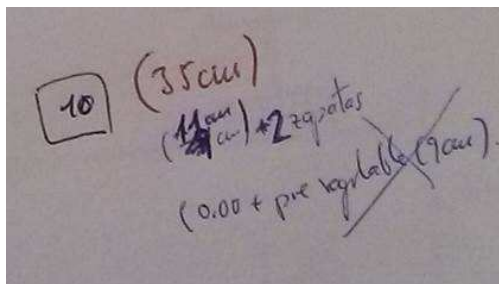 10
(35cm)
(11cm) + 2 zapatas
(0.00 + pie regulable (9cm).